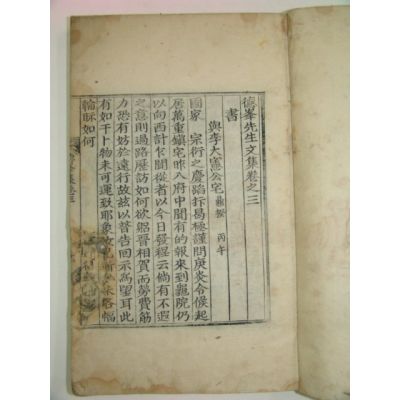 德峯先生文集卷之三
書
與李大憲公宅 鼎揆 丙午
國家 宗祊之慶蹈抃曷極謹問庚炎令候起
居萬重鎭宅昨入府中聞有的報來到龜院仍
以向西計乍聞從者以今日發程云倘有不遐
之意則過路歷訪如何欲躬晉相賀而勞費筋
力恐有妨於遠行故玆以普告回示爲望耳此
有如干卜物未可運致耶
輪脉如何